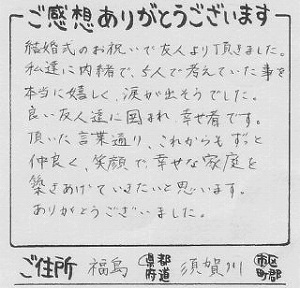 ご感想ありがとうございます
結婚式のお祝いで友人より頂きました。
私達に内緒で、5人で考えていた事を
本当に嬉しく、涙が出そうでした。
良い友人達に囲まれ、幸せ者です。
頂いた言葉通り、これからもずっと
仲良く、笑顔で、幸せな家庭を
築きあげていきたいと思います。
ありがとうございました。
ご住所 福島 都道府県 須賀川 市区町郡